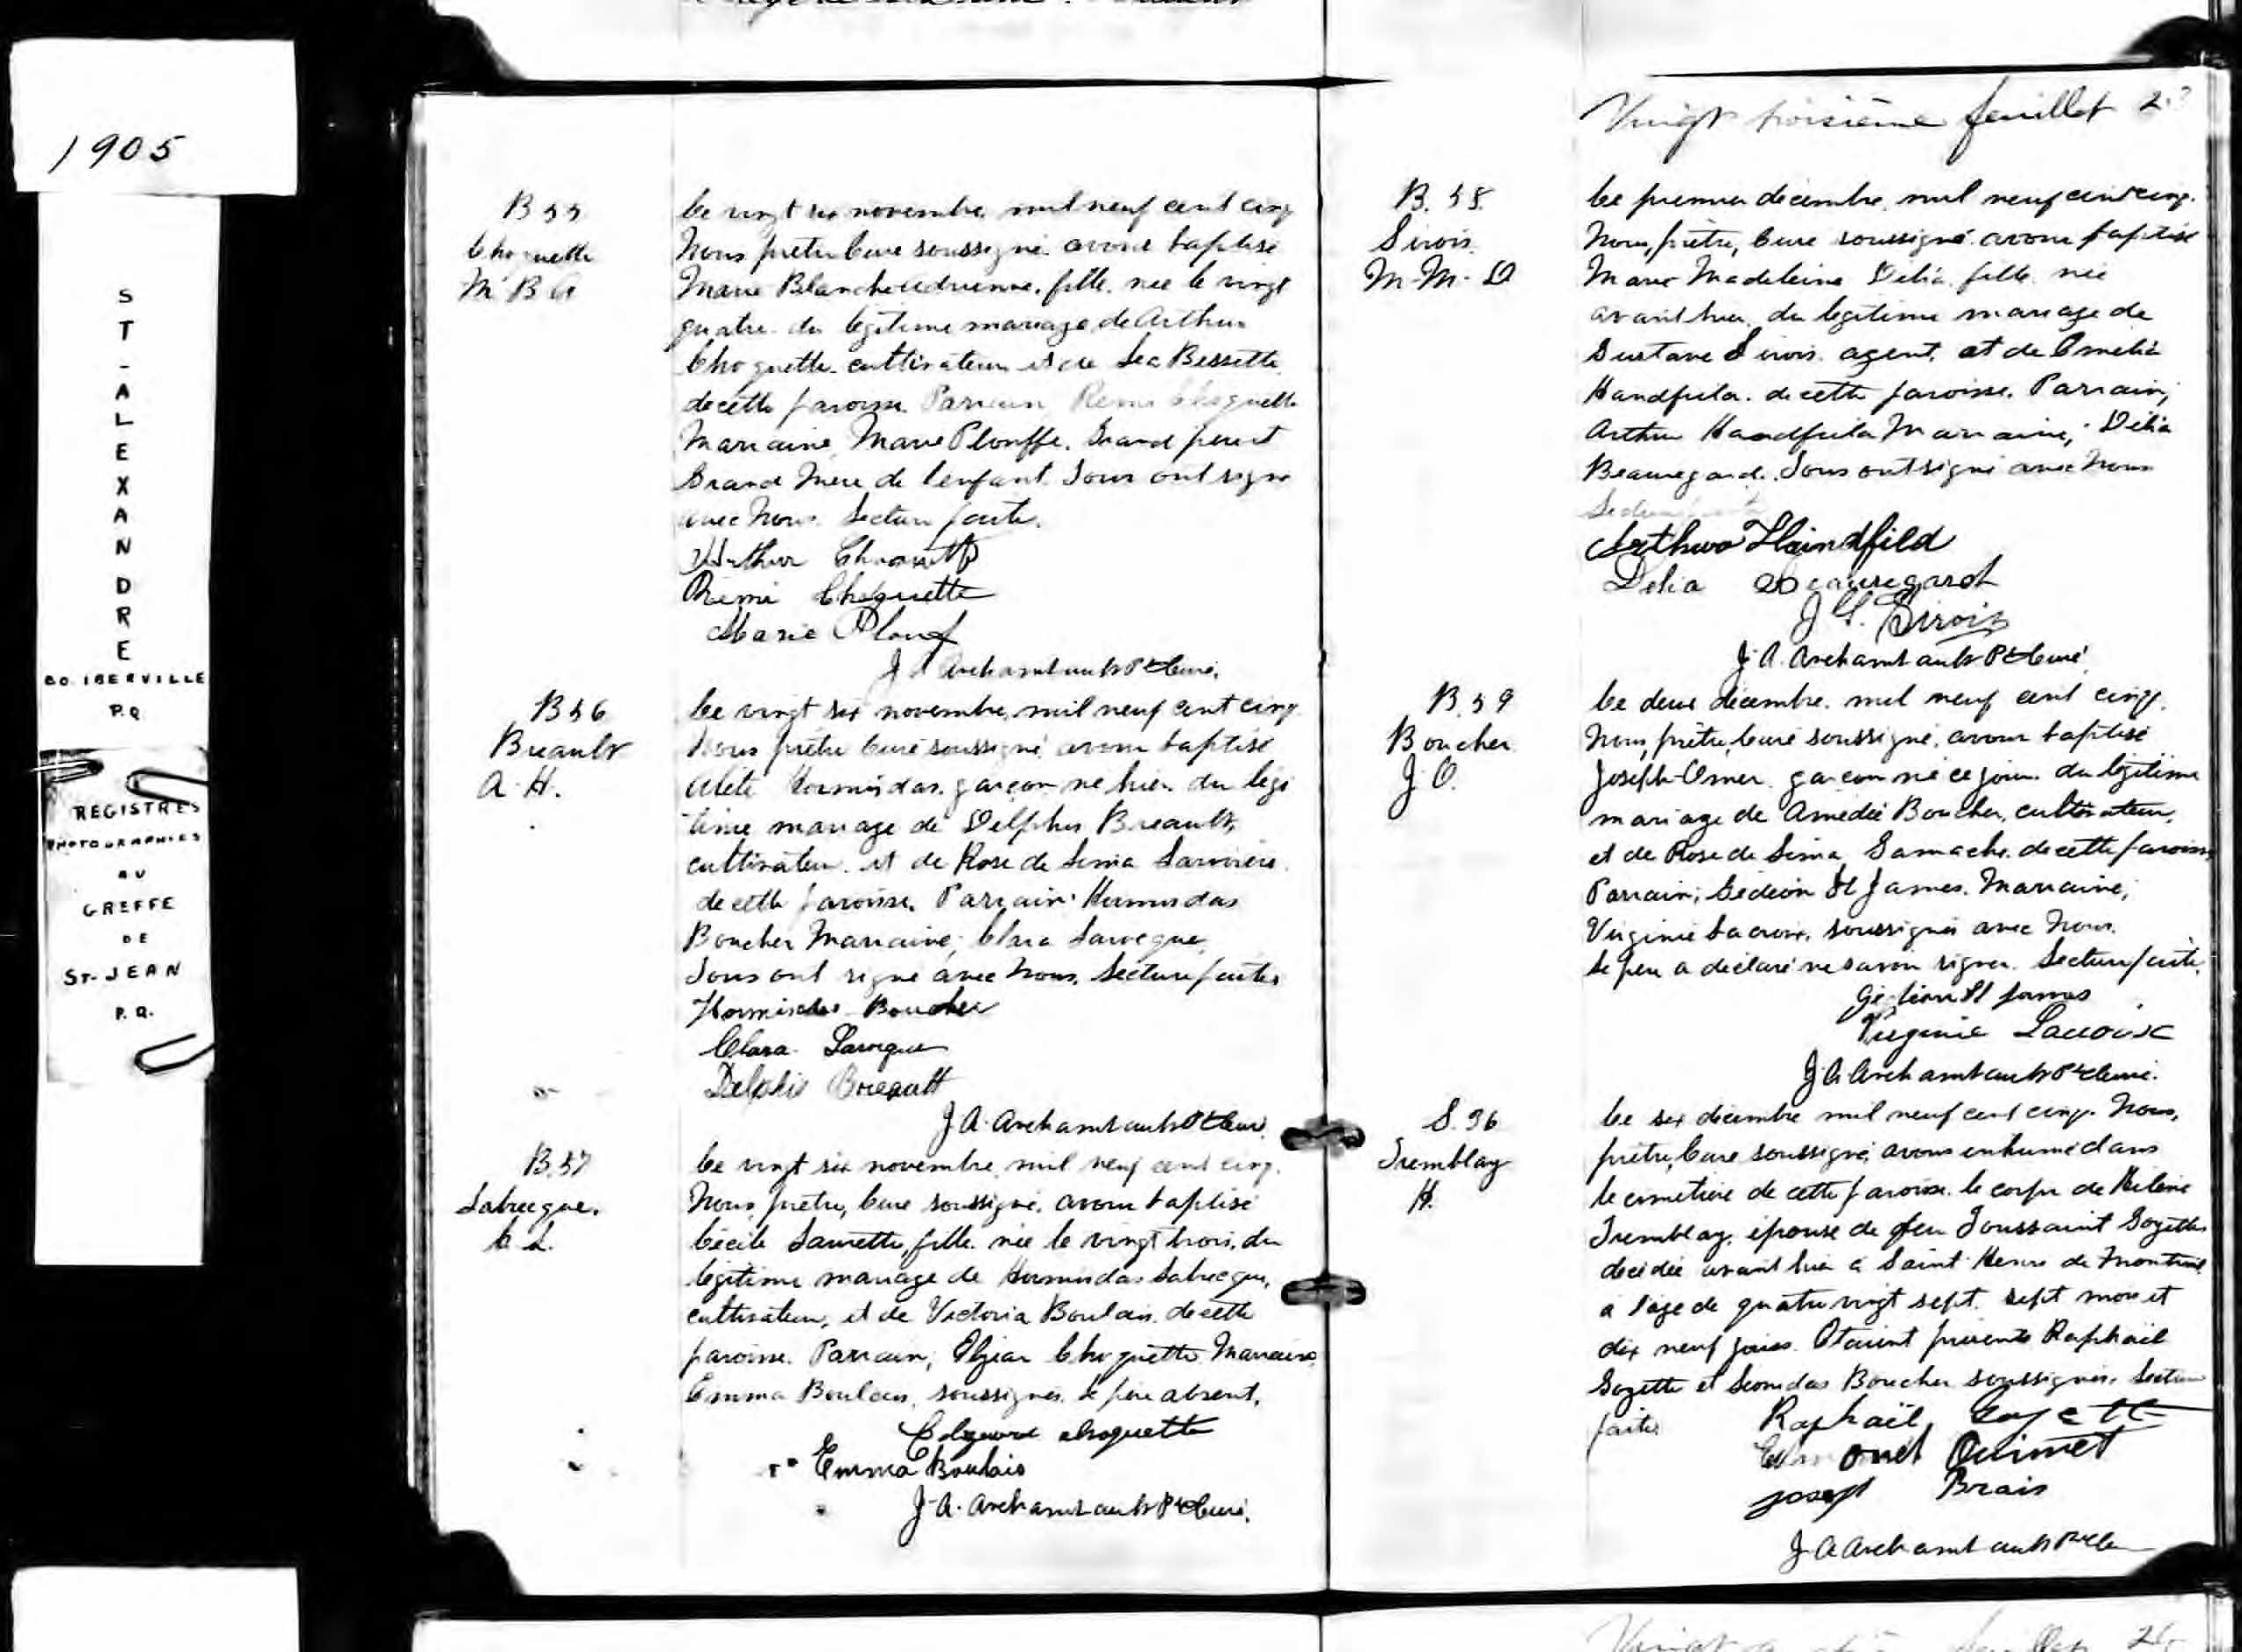 1905
ST-ALEXANDRE
CO. IBERVILLE
P.Q
REGISTRES
PHOTOGRAPHIES
AU
GREFFE
DE
ST-JEAN
P.Q.
B 55
Choquette
M B A
Le vingt six novembre, mil neuf cent cinq
Nous prêtre Curé soussigné avons baptisé
Marie Blanche Adrienne, fille, née le vingt
quatre du légitime mariage de Arthur
Choquette cultivateur et de Léa Bessette
de cette paroisse. Parrain Rémi Choquette
Marraine, Marie Plouffe. Grand père et
Grand Mère de l'enfant. Tous ont signé
avec Nous. Lecture faite.
Arthur Choquette
Remi Choquette
Marie Plouf
J A Archambault Ptre Curé.
B 56
Breault
A. H.
Le vingt six novembre, mil neuf cent cinq
Nous prêtre Curé soussigné avons baptisé
Hormisdas, garçon né hier du légi
time mariage de Delphis Breault,
cultivateur et de Rose de Lima Larivière
de cette paroisse. Parrain Hormisdas
Boucher Marraine, Clara Larocque,
Tous ont signé avec Nous, Lecture faite
Hormisdas Boucher
Clara Larocque
Delphis Breault
J A. Archambault Ptre Curé.
B. 57
Labrecque.
C. L.
Le vingt six novembre, mil neuf cent cinq.
Nous, prêtre, Curé soussigné, avons baptisé
Cécile Laurette, fille, née le vingt trois, du
légitime mariage de Hormisdas Labrecque,
cultivateur, et de Victoria Boulais, de cette
paroisse. Parrain, Elzéar Choquette Marraine,
Emma Boulais, soussignés, le père absent.
Choquette
Emma Boulais
J-A. Archambault Ptre Curé.
Vingt troisième feuillet 23
B. 58.
Sirois
M-M-D
Le premier décembre, mil neuf cent cinq.
Nous, prêtre, Curé soussigné avons baptisé
Marie Madeleine Délia, fille, née
avant hier, du légitime mariage de
Gustave Sirois, agent, et de Amélia
Handfield, de cette paroisse. Parrain,
Arthur Handfield Marraine, Délia
Beauregard. Tous ont signé avec Nous
Lecture faite
Arthur Handfield
Delia Beauregard
J G. Sirois
J. A. Archambault Ptre Curé
B. 59
Boucher
J. O.
Le deux décembre, mil neuf cent cinq.
Nous, prêtre, Curé soussigné, avons baptisé
Joseph-Omer, garçon né ce jour, du légitime
mariage de Amédée Boucher, cultivateur,
et de Rose de Lima Gamache, de cette paroisse
Parrain, Gédéon St James. Marraine,
Virginie Lacroix, soussignés avec Nous.
Le père a déclaré ne savoir signer. Lecture faite.
Gédéon St James
Virginie Lacroix
J. A. Archambault Ptre Curé.
S. 36
Tremblay
H.
Le six décembre mil neuf cent cinq. Nous,
prêtre, Curé soussigné, avons inhumé dans
le cimetière de cette paroisse, le corps de Hélène
Tremblay, épouse de feu Toussaint Goyette
décédée avant hier à Saint Henri de Montréal
à l'âge de quatre vingt sept, sept mois et
dix neuf jours. Étaient présents Raphaël
Goyette et Léonidas Boucher soussignés. Lecture
faite
Raphaël Goyette
Edmond Ouimet
Joseph Brais
J A Archambault Ptre